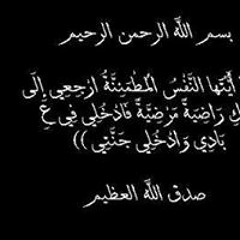 بسم اللَّه الرحمن الرحيم
أَيَّتُهَا النَّفْسُ الْمُطْمَئِنَّةُ ارْجِعِي إِلَى
كِ رَاضِيَةً مَرْضِيَّةً فَادْخُلِي فِي عِ
بَادِي وَادْخُلِي جَنَّتِي ))
صدق اللَّه العظيم